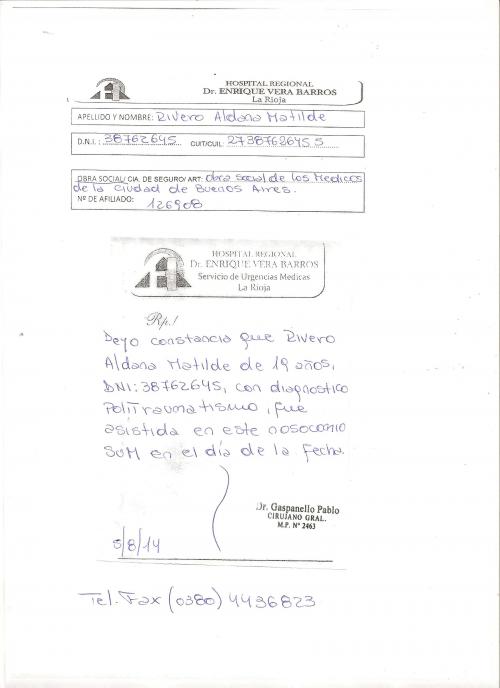 HOSPITAL REGIONAL
Dr. ENRIQUE VERA BARROS
La Rioja
APELLIDO Y NOMBRE: Rivero Aldana Matilde
D.N.I.: 38762645 CUIT/CUIL: 27387626455
OBRA SOCIAL/ CIA. DE SEGURO/ ART: Obra Social de los Medicos
de la Ciudad de Buenos Aires.
Nº DE AFILIADO: 126908
HOSPITAL REGIONAL
Dr. ENRIQUE VERA BARROS
Servicio de Urgencias Medicas
La Rioja
Rp./
Dejo constancia que Rivero
Aldana Matilde de 19 años,
DNI: 38762645, con diagnostico
Politraumatismo, fue
asistida en este nosocomio
SUM en el día de la fecha.
Dr. Gaspanello Pablo
CIRUJANO GRAL.
M.P. N° 2463
5/8/14
Tel. Fax (0380) 4436823